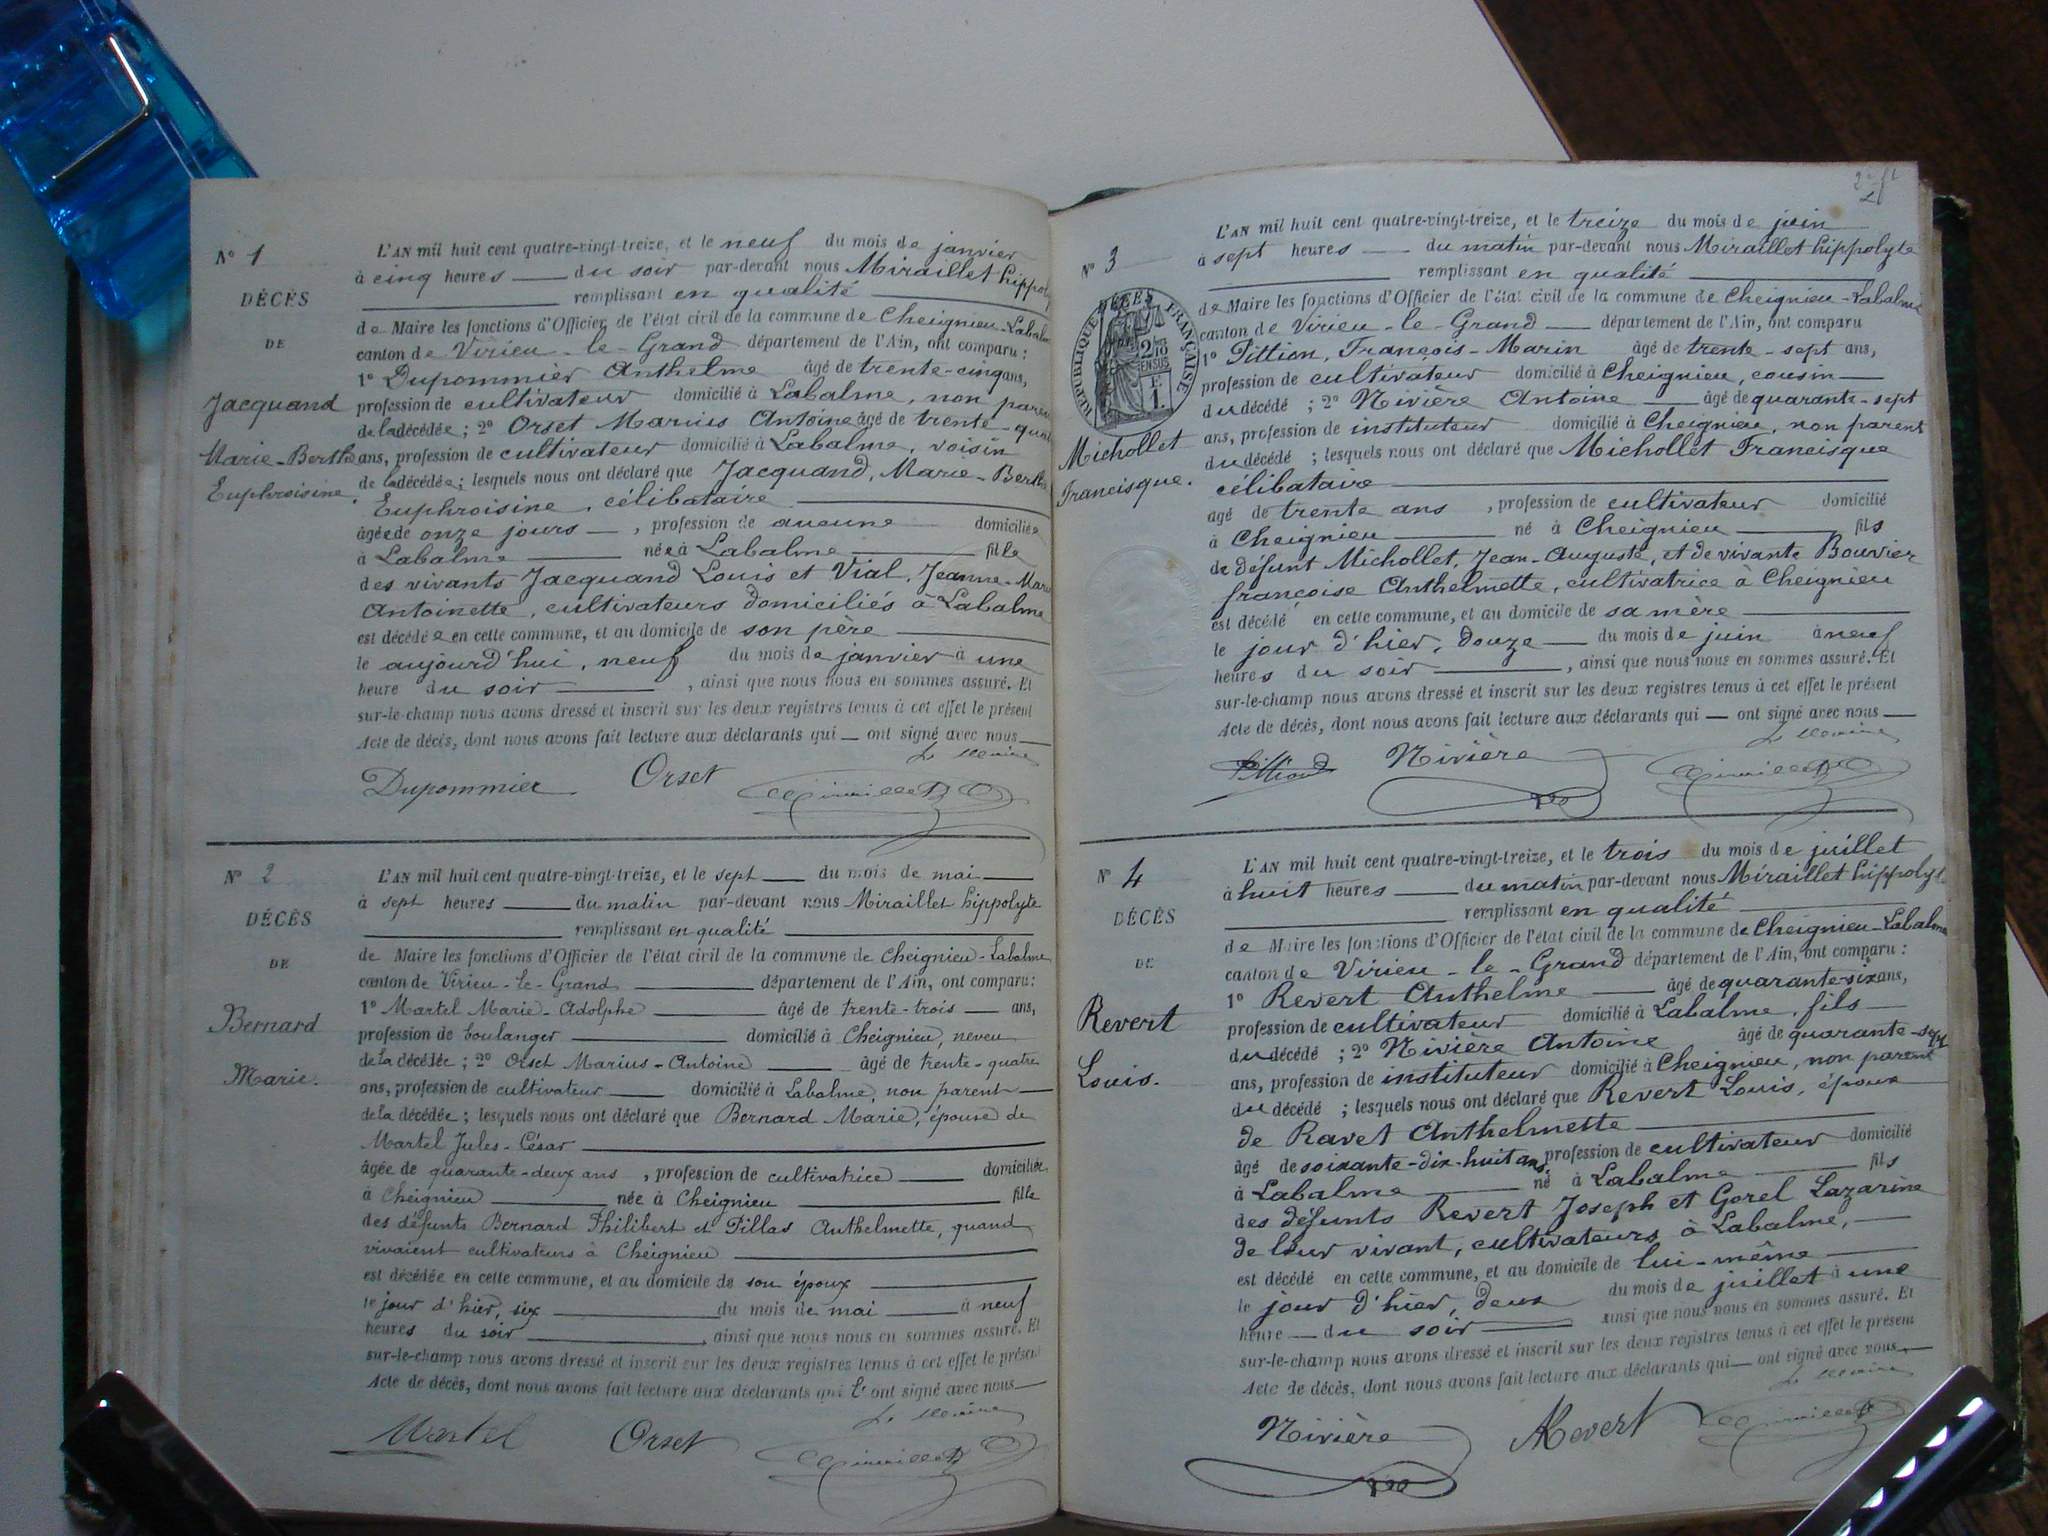 N° 1
DÉCÈS
DE
Jacquand
Marie-Berthe
Euphroisine.
L'AN mil huit cent quatre-vingt-treize, et le neuf du mois de janvier
à cinq heures — du soir par-devant nous Miraillet hippoly
remplissant en qualité
de Maire les fonctions d'Officier de l'état civil de la commune de Cheignieu-Labalme
canton de Virieu-le-Grand département de l'Ain, ont comparu :
1° Dupommier Anthelme âgé de trente-cinq ans,
profession de cultivateur domicilié à Labalme, non parent
de la décédée ; 2° Orset Marius Antoine âgé de trente-quatre
ans, profession de cultivateur domicilié à Labalme, voisin
de la décédée ; lesquels nous ont déclaré que Jacquand, Marie-Berthe
Euphroisine, célibataire
âgée de onze jours —, profession de aucune domiciliée
à Labalme — née à Labalme — fille
des vivants Jacquand Louis et Vial, Jeanne-Marie
Antoinette, cultivateurs domiciliés à Labalme
est décédée en cette commune, et au domicile de son père
le aujourd'hui, neuf du mois de janvier à une
heure du soir —, ainsi que nous nous en sommes assuré. Et
sur-le-champ nous avons dressé et inscrit sur les deux registres tenus à cet effet le présent
Acte de décès, dont nous avons fait lecture aux déclarants qui — ont signé avec nous —
Le Maire
Dupommier Orset Miraillet
N° 2
DÉCÈS
DE
Bernard
Marie.
L'AN mil huit cent quatre-vingt-treize, et le sept — du mois de mai —
à sept heures — du matin par-devant nous Miraillet hippolyte
remplissant en qualité
de Maire les fonctions d'Officier de l'état civil de la commune de Cheignieu-Labalme
canton de Virieu-le-Grand — département de l'Ain, ont comparu :
1° Martel Marie-Adolphe — âgé de trente-trois — ans,
profession de boulanger — domicilié à Cheignieu, neveu
de la décédée ; 2° Orset Marius-Antoine — âgé de trente-quatre
ans, profession de cultivateur — domicilié à Labalme, non parent —
de la décédée ; lesquels nous ont déclaré que Bernard Marie, épouse de
Martel Jules-César
âgée de quarante-deux ans , profession de cultivatrice — domiciliée
à Cheignieu — née à Cheignieu — fille
des défunts Bernard Philibert et Pillas Anthelmette, quand
vivaient cultivateurs à Cheignieu
est décédée en cette commune, et au domicile de son époux
le jour d'hier, six — du mois de mai — à neuf
heures du soir —, ainsi que nous nous en sommes assuré. Et
sur-le-champ nous avons dressé et inscrit sur les deux registres tenus à cet effet le présent
Acte de décès, dont nous avons fait lecture aux déclarants qui l'ont signé avec nous —
Le Maire
Martel Orset Miraillet
N° 3
DÉCÈS
RÉPUBLIQUE FRANÇAISE
2/10 EN SUS
F. 1.
Michollet
Francisque.
L'AN mil huit cent quatre-vingt-treize, et le treize du mois de juin
à sept heures — du matin par-devant nous Miraillet hippolyte
remplissant en qualité
de Maire les fonctions d'Officier de l'état civil de la commune de Cheignieu-Labalme
canton de Virieu-le-Grand — département de l'Ain, ont comparu
1° Pittion, François-Marin âgé de trente-sept ans,
profession de cultivateur domicilié à Cheignieu, cousin —
du décédé ; 2° Nivière Antoine — âgé de quarante-sept
ans, profession de instituteur domicilié à Cheignieu, non parent
du décédé ; lesquels nous ont déclaré que Michollet Francisque
célibataire
âgé de trente ans , profession de cultivateur domicilié
à Cheignieu — né à Cheignieu — fils
de défunt Michollet, Jean-Auguste, et de vivante Bouvier
françoise Anthelmette, cultivatrice à Cheignieu
est décédé en cette commune, et au domicile de sa mère
le jour d'hier, douze — du mois de juin à neuf
heures du soir —, ainsi que nous nous en sommes assuré. Et
sur-le-champ nous avons dressé et inscrit sur les deux registres tenus à cet effet le présent
Acte de décès, dont nous avons fait lecture aux déclarants qui — ont signé avec nous —
Le Maire
Pittion Nivière Miraillet
N° 4
DÉCÈS
DE
Revert
Louis.
L'AN mil huit cent quatre-vingt-treize, et le trois du mois de juillet
à huit heures — du matin par-devant nous Miraillet hippolyte
remplissant en qualité
de Maire les fonctions d'Officier de l'état civil de la commune de Cheignieu-Labalme
canton de Virieu-le-Grand département de l'Ain, ont comparu :
1° Revert Anthelme — âgé de quarante-six ans,
profession de cultivateur domicilié à Labalme, fils —
du décédé ; 2° Nivière Antoine âgé de quarante-sept
ans, profession de instituteur domicilié à Cheignieu, non parent
du décédé ; lesquels nous ont déclaré que Revert Louis, époux
de Ravet Anthelmette
âgé de soixante-dix-huit ans, profession de cultivateur domicilié
à Labalme — né à Labalme — fils
des défunts Revert Joseph et Gorel Lazarine
de leur vivant, cultivateurs à Labalme, —
est décédé en cette commune, et au domicile de lui-même —
le jour d'hier, deux du mois de juillet à une
heure — du soir — ainsi que nous nous en sommes assuré. Et
sur-le-champ nous avons dressé et inscrit sur les deux registres tenus à cet effet le présent
Acte de décès, dont nous avons fait lecture aux déclarants qui — ont signé avec nous —
Le Maire
Nivière ARevert Miraillet